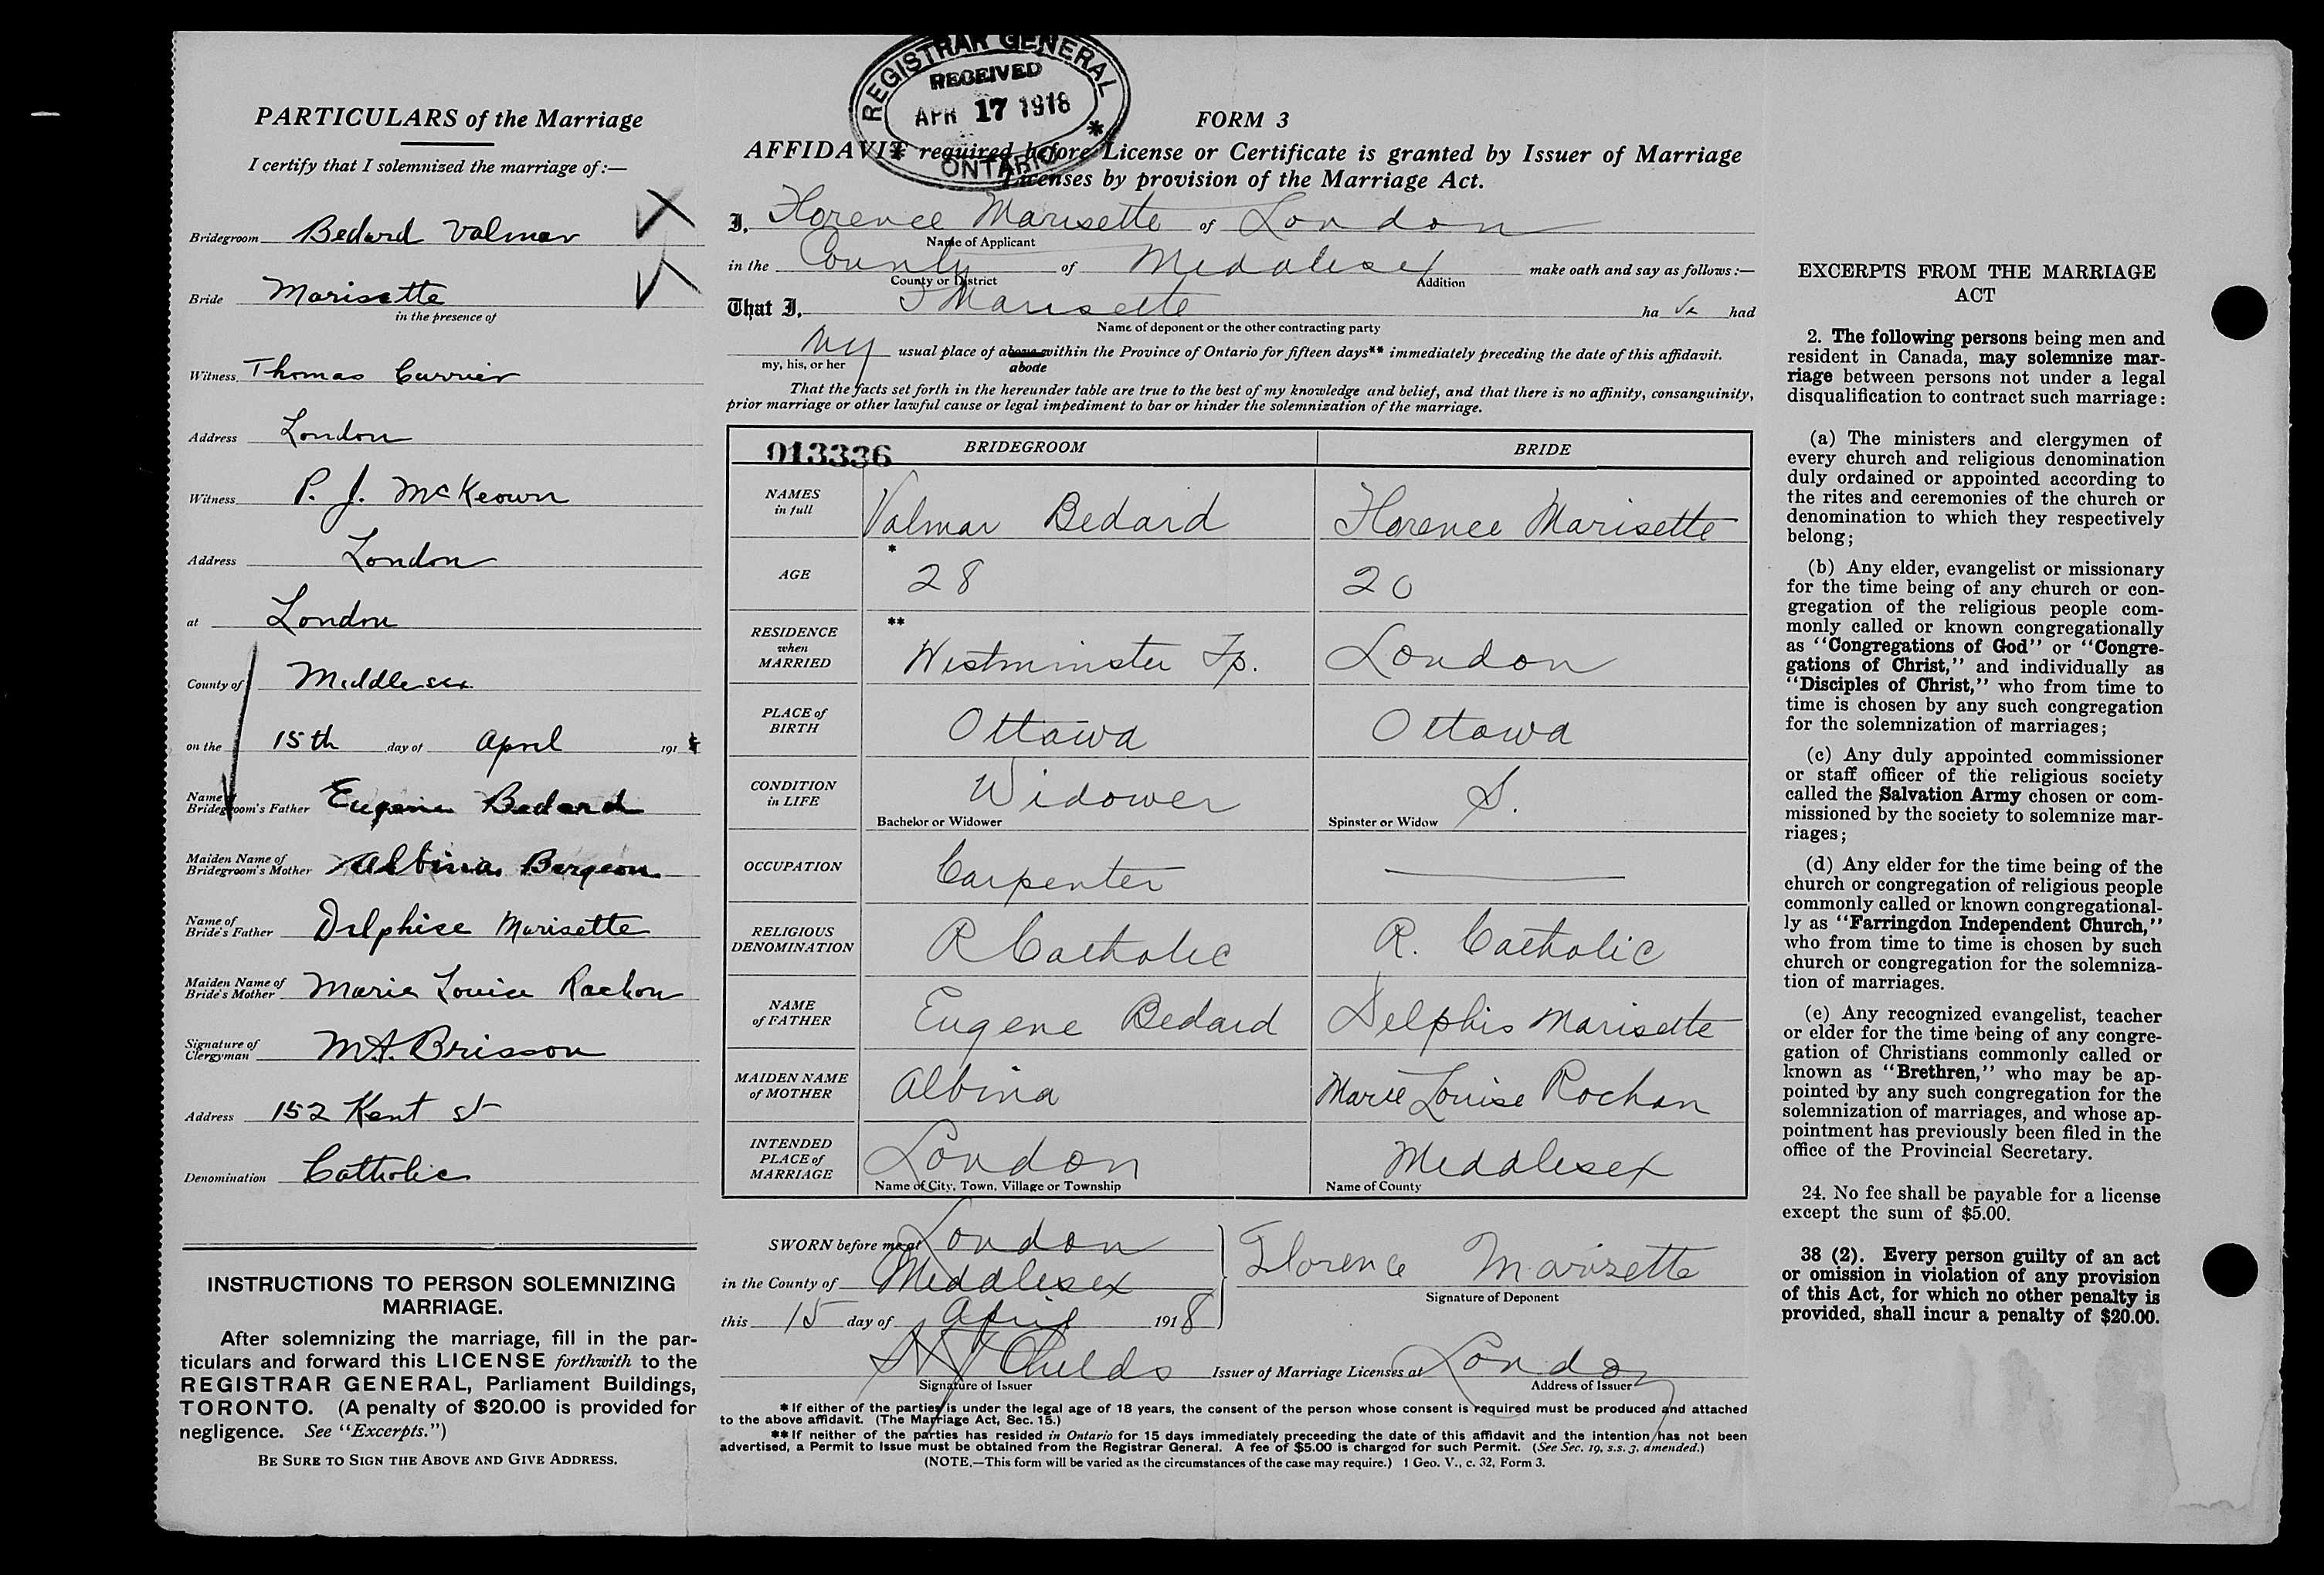 PARTICULARS of the Marriage
I certify that I solemnized the marriage of:—
Bridegroom Bedard Valmar
Bride Marisette
in the presence of
Witness Thomas Currier
Address London
Witness P. J. McKeown
Address London
at London
County of Middlesex
on the 15th day of April 191
Name of Bridegroom's Father Eugene Bedard
Maiden Name of Bridegroom's Mother Albina Bergeon
Name of Bride's Father Delphise Marisette
Maiden Name of Bride's Mother Marie Louise Rachon
Signature of Clergyman M.A. Brisson
Address 152 Kent St
Denomination Catholic
INSTRUCTIONS TO PERSON SOLEMNIZING
MARRIAGE.
After solemnizing the marriage, fill in the par-
ticulars and forward this LICENSE forthwith to the
REGISTRAR GENERAL, Parliament Buildings,
TORONTO. (A penalty of $20.00 is provided for
negligence. See "Excerpts.")
BE SURE TO SIGN THE ABOVE AND GIVE ADDRESS.
REGISTRAR GENERAL
RECEIVED
APR 17 1918
ONTARIO
FORM 3
AFFIDAVIT required before License or Certificate is granted by Issuer of Marriage
Licenses by provision of the Marriage Act.
I, Florence Marisette of London
Name of Applicant
in the County of Middlesex make oath and say as follows:—
County or District Addition
That I, F Marisette ha ve had
Name of deponent or the other contracting party
my usual place of above within the Province of Ontario for fifteen days** immediately preceding the date of this affidavit.
my, his, or her abode
That the facts set forth in the hereunder table are true to the best of my knowledge and belief, and that there is no affinity, consanguinity,
prior marriage or other lawful cause or legal impediment to bar or hinder the solemnization of the marriage.
013336 BRIDEGROOM BRIDE
NAMES in full Valmar Bedard Florence Marisette
AGE * 28 20
RESIDENCE when MARRIED ** Westminster Tp. London
PLACE of BIRTH Ottawa Ottawa
CONDITION in LIFE Widower S.
Bachelor or Widower Spinster or Widow
OCCUPATION Carpenter —
RELIGIOUS DENOMINATION R Catholic R. Catholic
NAME of FATHER Eugene Bedard Delphis Marisette
MAIDEN NAME of MOTHER Albina Marie Louise Rochon
INTENDED PLACE of MARRIAGE London Middlesex
Name of City, Town, Village or Township Name of County
SWORN before me at London
in the County of Middlesex
this 15 day of April 1918
Florence Marisette
Signature of Deponent
Childs Issuer of Marriage Licenses at London
Signature of Issuer Address of Issuer
* If either of the parties is under the legal age of 18 years, the consent of the person whose consent is required must be produced and attached
to the above affidavit. (The Marriage Act, Sec. 15.)
** If neither of the parties has resided in Ontario for 15 days immediately preceeding the date of this affidavit and the intention has not been
advertised, a Permit to Issue must be obtained from the Registrar General. A fee of $5.00 is charged for such Permit. (See Sec. 19, s.s. 3, amended.)
(NOTE.—This form will be varied as the circumstances of the case may require.) 1 Geo. V., c. 32, Form 3.
EXCERPTS FROM THE MARRIAGE
ACT
2. The following persons being men and
resident in Canada, may solemnize mar-
riage between persons not under a legal
disqualification to contract such marriage:
(a) The ministers and clergymen of
every church and religious denomination
duly ordained or appointed according to
the rites and ceremonies of the church or
denomination to which they respectively
belong;
(b) Any elder, evangelist or missionary
for the time being of any church or con-
gregation of the religious people com-
monly called or known congregationally
as "Congregations of God" or "Congre-
gations of Christ," and individually as
"Disciples of Christ," who from time to
time is chosen by any such congregation
for the solemnization of marriages;
(c) Any duly appointed commissioner
or staff officer of the religious society
called the Salvation Army chosen or com-
missioned by the society to solemnize mar-
riages;
(d) Any elder for the time being of the
church or congregation of religious people
commonly called or known congregational-
ly as "Farringdon Independent Church,"
who from time to time is chosen by such
church or congregation for the solemniza-
tion of marriages.
(e) Any recognized evangelist, teacher
or elder for the time being of any congre-
gation of Christians commonly called or
known as "Brethren," who may be ap-
pointed by any such congregation for the
solemnization of marriages, and whose ap-
pointment has previously been filed in the
office of the Provincial Secretary.
24. No fee shall be payable for a license
except the sum of $5.00.
38 (2). Every person guilty of an act
or omission in violation of any provision
of this Act, for which no other penalty is
provided, shall incur a penalty of $20.00.